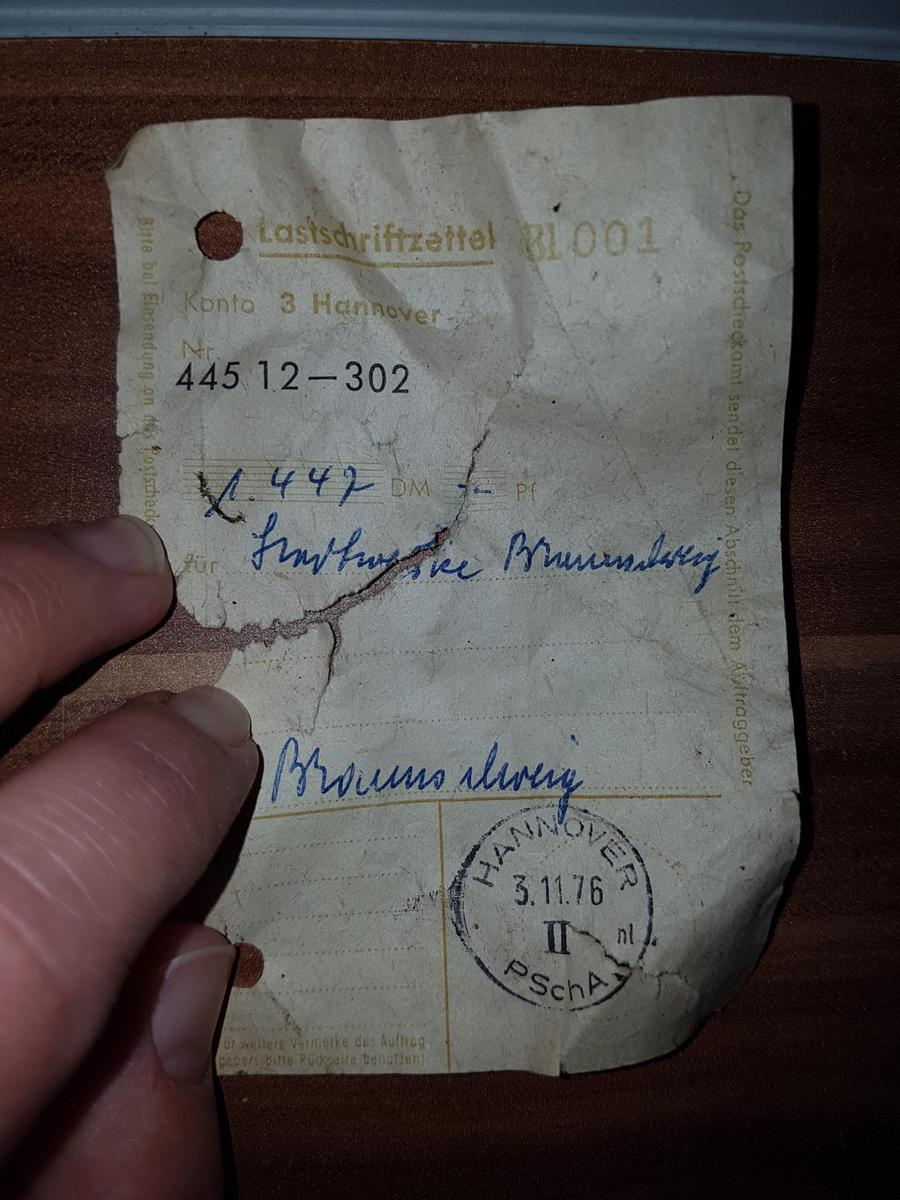 Lastschriftzettel 001
Konto 3 Hannover
Nr.
445 12-302
1.447 DM -- Pf
für Stadtwerke Braunschweig
Braunschweig
HANNOVER
3.11.76
II nl
PSchA
für weitere Vermerke des Auftrag
gebers bitte Rückseite benutzen!
Bitte bei Einsendung an das Postscheck
Das Postscheckamt sendet diesen Abschnitt dem Auftraggeber